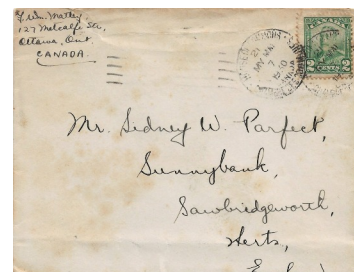 F. Wm. Mattey
127 Metcalfe Str,
Ottawa, Ont.
CANADA.
CANADA
2 CENTS 2
21
MY
7
Mr. Sidney W. Parfect,
Sunnybank,
Sawbridgeworth,
Herts,